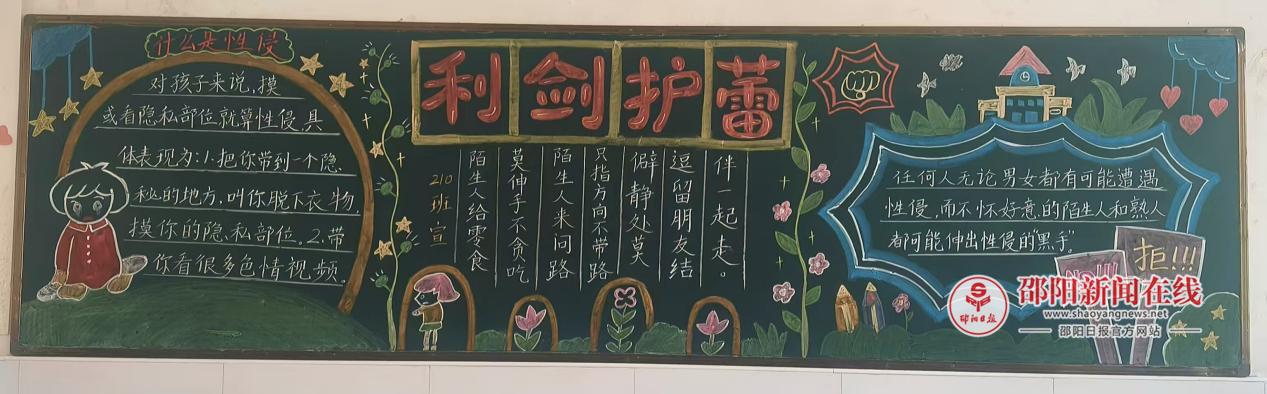 什么是性侵
对孩子来说,摸
或看隐私部位就算性侵,具
体表现为:1.把你带到一个隐
秘的地方,叫你脱下衣物,
摸你的隐私部位。2.带
你看很多色情视频。
利剑护蕾
伴一起走。
逗留朋友结
僻静处莫
只指方向不带路
陌生人来问路
莫伸手不贪吃
陌生人给零食
210班宣
任何人无论男女都有可能遭遇
性侵,而不怀好意的陌生人和熟人
都可能伸出性侵的"黑手"。
拒!!!
邵阳新闻在线
www.shaoyangnews.net
邵阳日报官方网站
邵阳日报